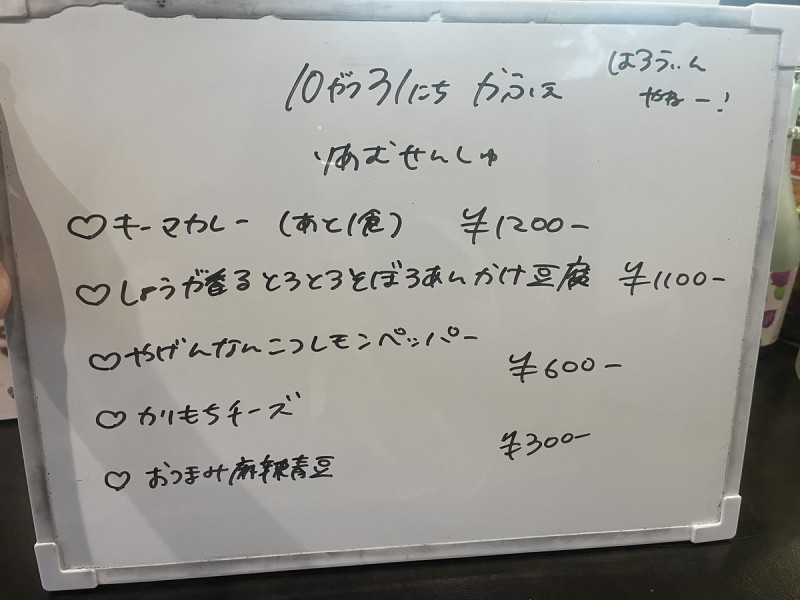 10がつ31にち かふぇ
はろうぃん
やねー!
りあむせんしゅ
♡キーマカレー (あと1食) ¥1200-
♡しょうが香るとろとろそぼろあんかけ豆腐 ¥1100-
♡やげんなんこつレモンペッパー
¥600-
♡かりもちチーズ
¥300-
♡おつまみ麻辣青豆